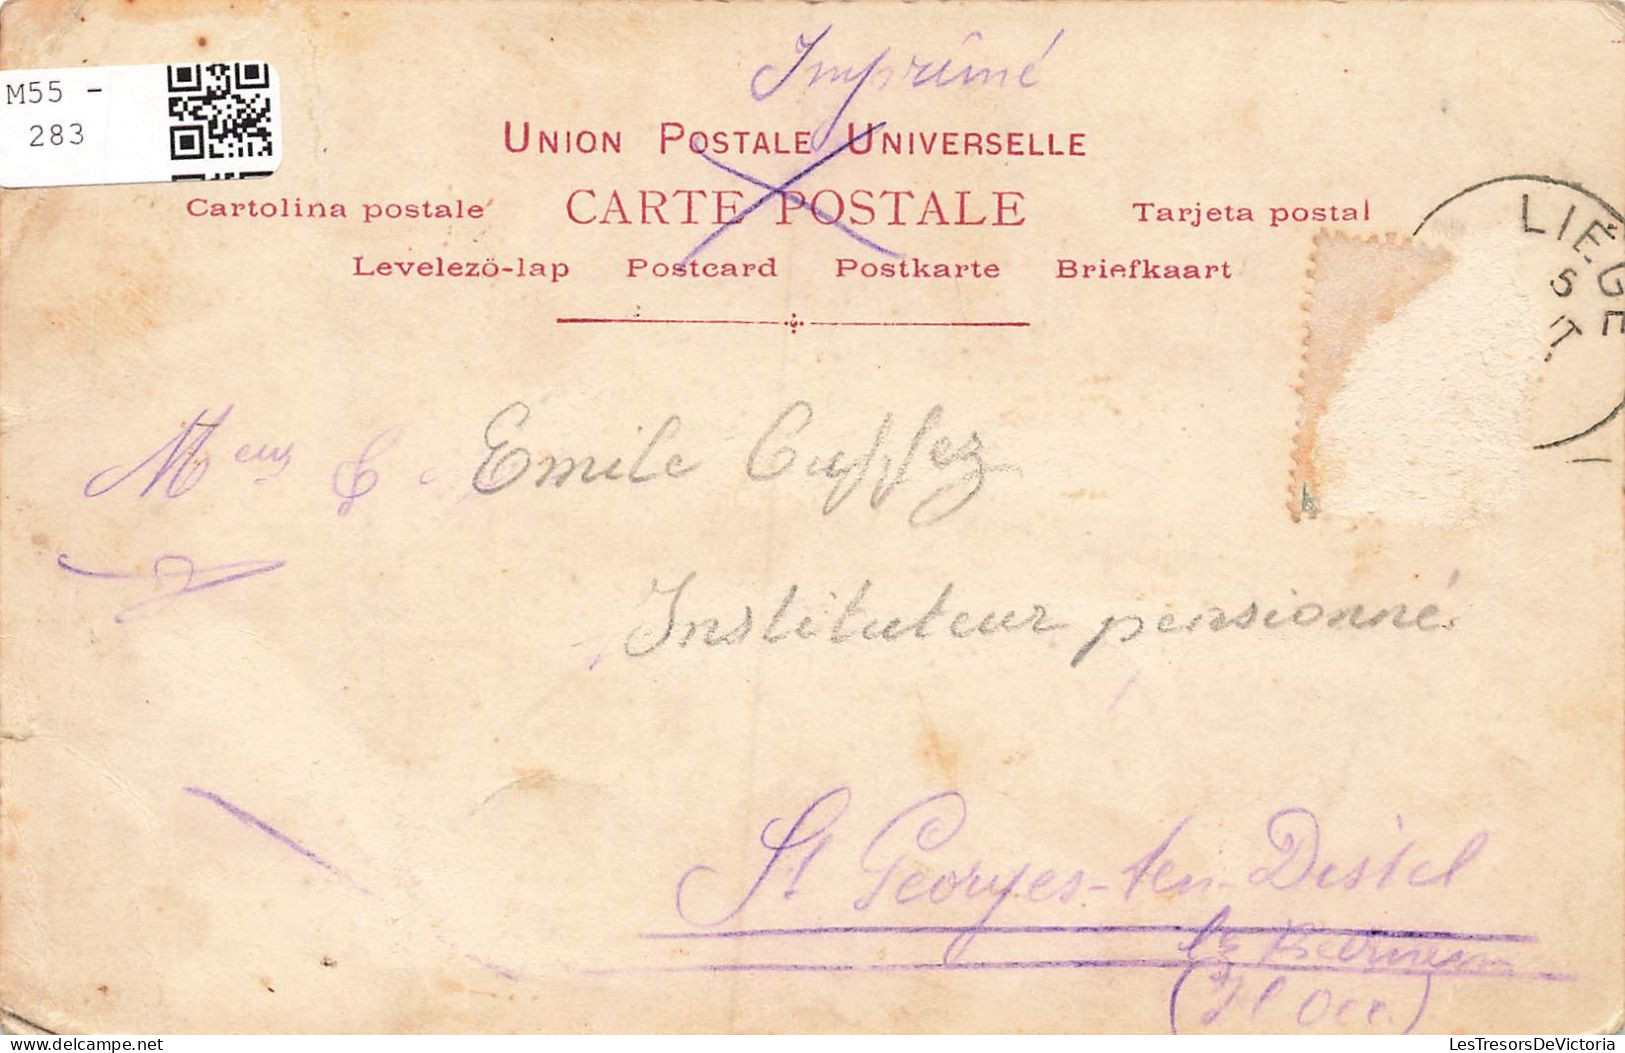 M55 -
283
Imprimé
UNION POSTALE UNIVERSELLE
CARTE POSTALE
Cartolina postale
Tarjeta postal
Levelező-lap Postcard Postkarte Briefkaart
LIÉGE
5
Meus E Emile Cuffez
Instituteur pensionné
St Georges-ten-Distel
lez Beernem
(Fl Occ.)
delcampe.net
LesTresorsDeVictoria